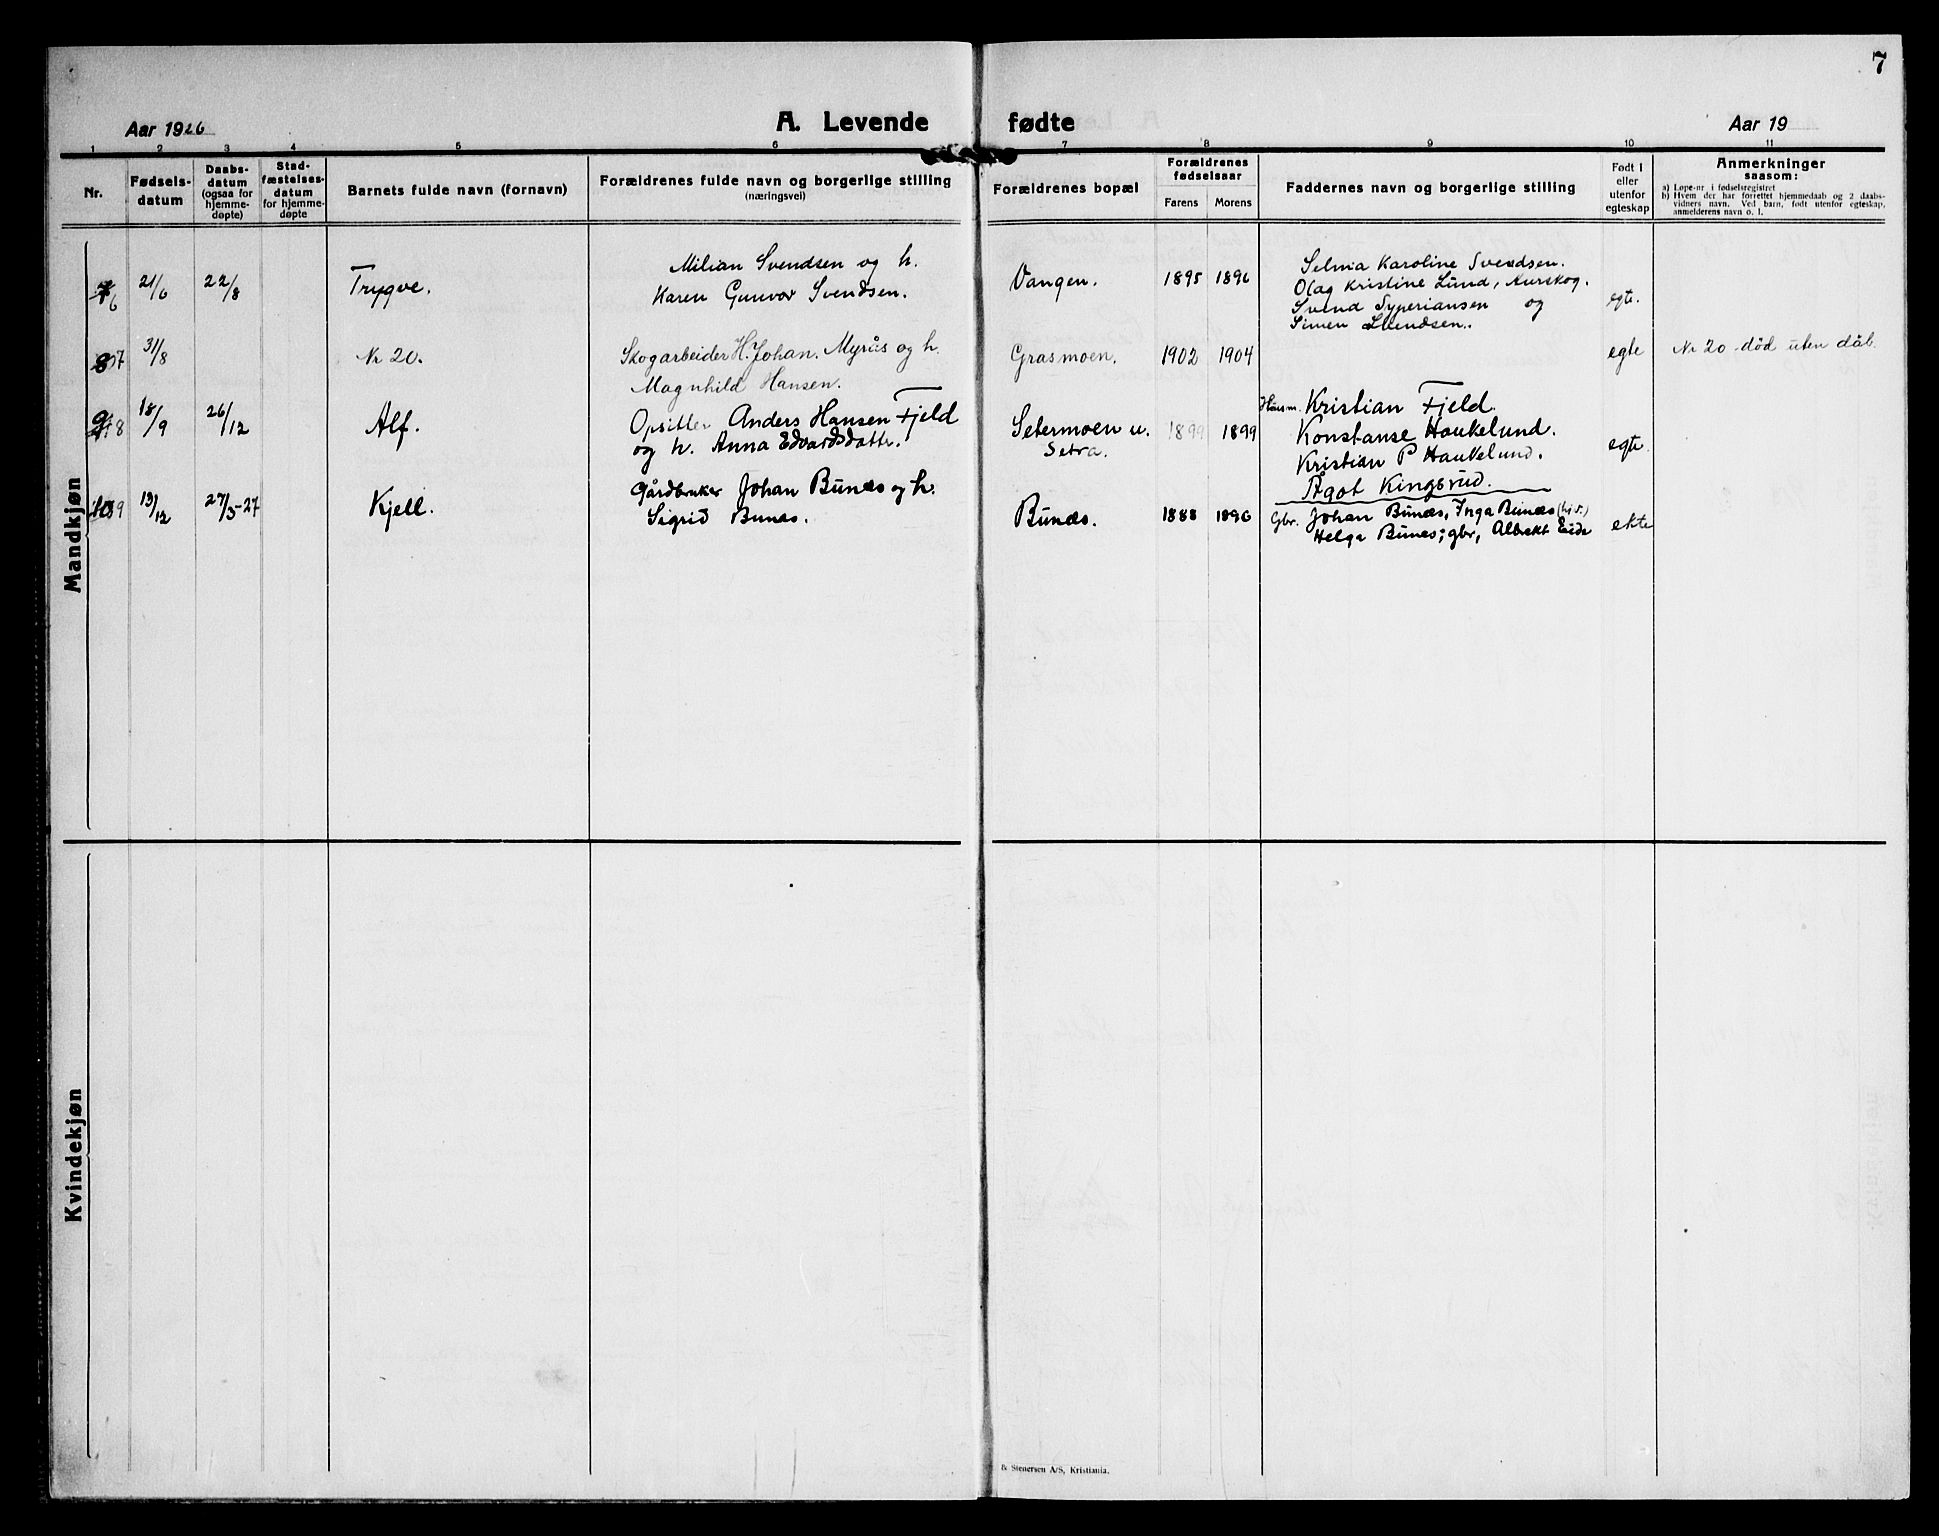 7
Aar 1926
A. Levende fødte
Aar 19
1 2 3 4 5 6 7 8 9 10 11
Nr.
Fødsels-
datum
Daabs-
datum
(ogsaa for
hjemme-
døpte)
Stad-
fæstelses-
datum
for hjemme-
døpte
Barnets fulde navn (fornavn)
Forældrenes fulde navn og borgerlige stilling
(næringsvei)
Forældrenes bopæl
Forældrenes
fødselsaar
Farens Morens
Faddernes navn og borgerlige stilling
Født i
eller
utenfor
egteskap
Anmerkninger
saasom:
a) Løpe-nr i fødselsregistret
b) Hvem der har forrettet hjemmedaab og 2 daabs-
vidners navn. Ved barn, født utenfor egteskap,
anmelderens navn o. l.
Mandkjøn
6 21/6 22/8 Trygve.
Milian Svendsen og h.
Karen Gunvor Svendsen.
Vangen. 1895 1896
Selma Karoline Svendsen.
Olag Kristine Lund, Aurskog.
Svend Syperiansen og
Simen Svendsen.
egte.
8 7 31/8 Nr 20.
Skogarbeider H. Johan. Myrås og h.
Magnhild Hansen.
Grasmoen. 1902 1904 egte Nr 20 død uten dåb.
9 8 18/9 26/12 Alf.
Opsitter Anders Hansen Fjeld
og h. Anna Edvardsdatter.
Setermoen u.
Setra.
1899 1899
Husm. Kristian Fjeld.
Konstanse Haukelund.
Kristian P Haukelund.
Ågot Kingsrud.
egte
10 9 13/12 27/3-27 Kjell.
Gårdbruker Johan Bunæs og h.
Sigrid Bunæs.
Bunæs. 1888 1896
Gbr. Johan Bunæs, Inga Bunæs
Helga Bunæs; gbr, Albrekt Eide
ekte
Kvindekjøn
& Stenersen A/S, Kristiania.